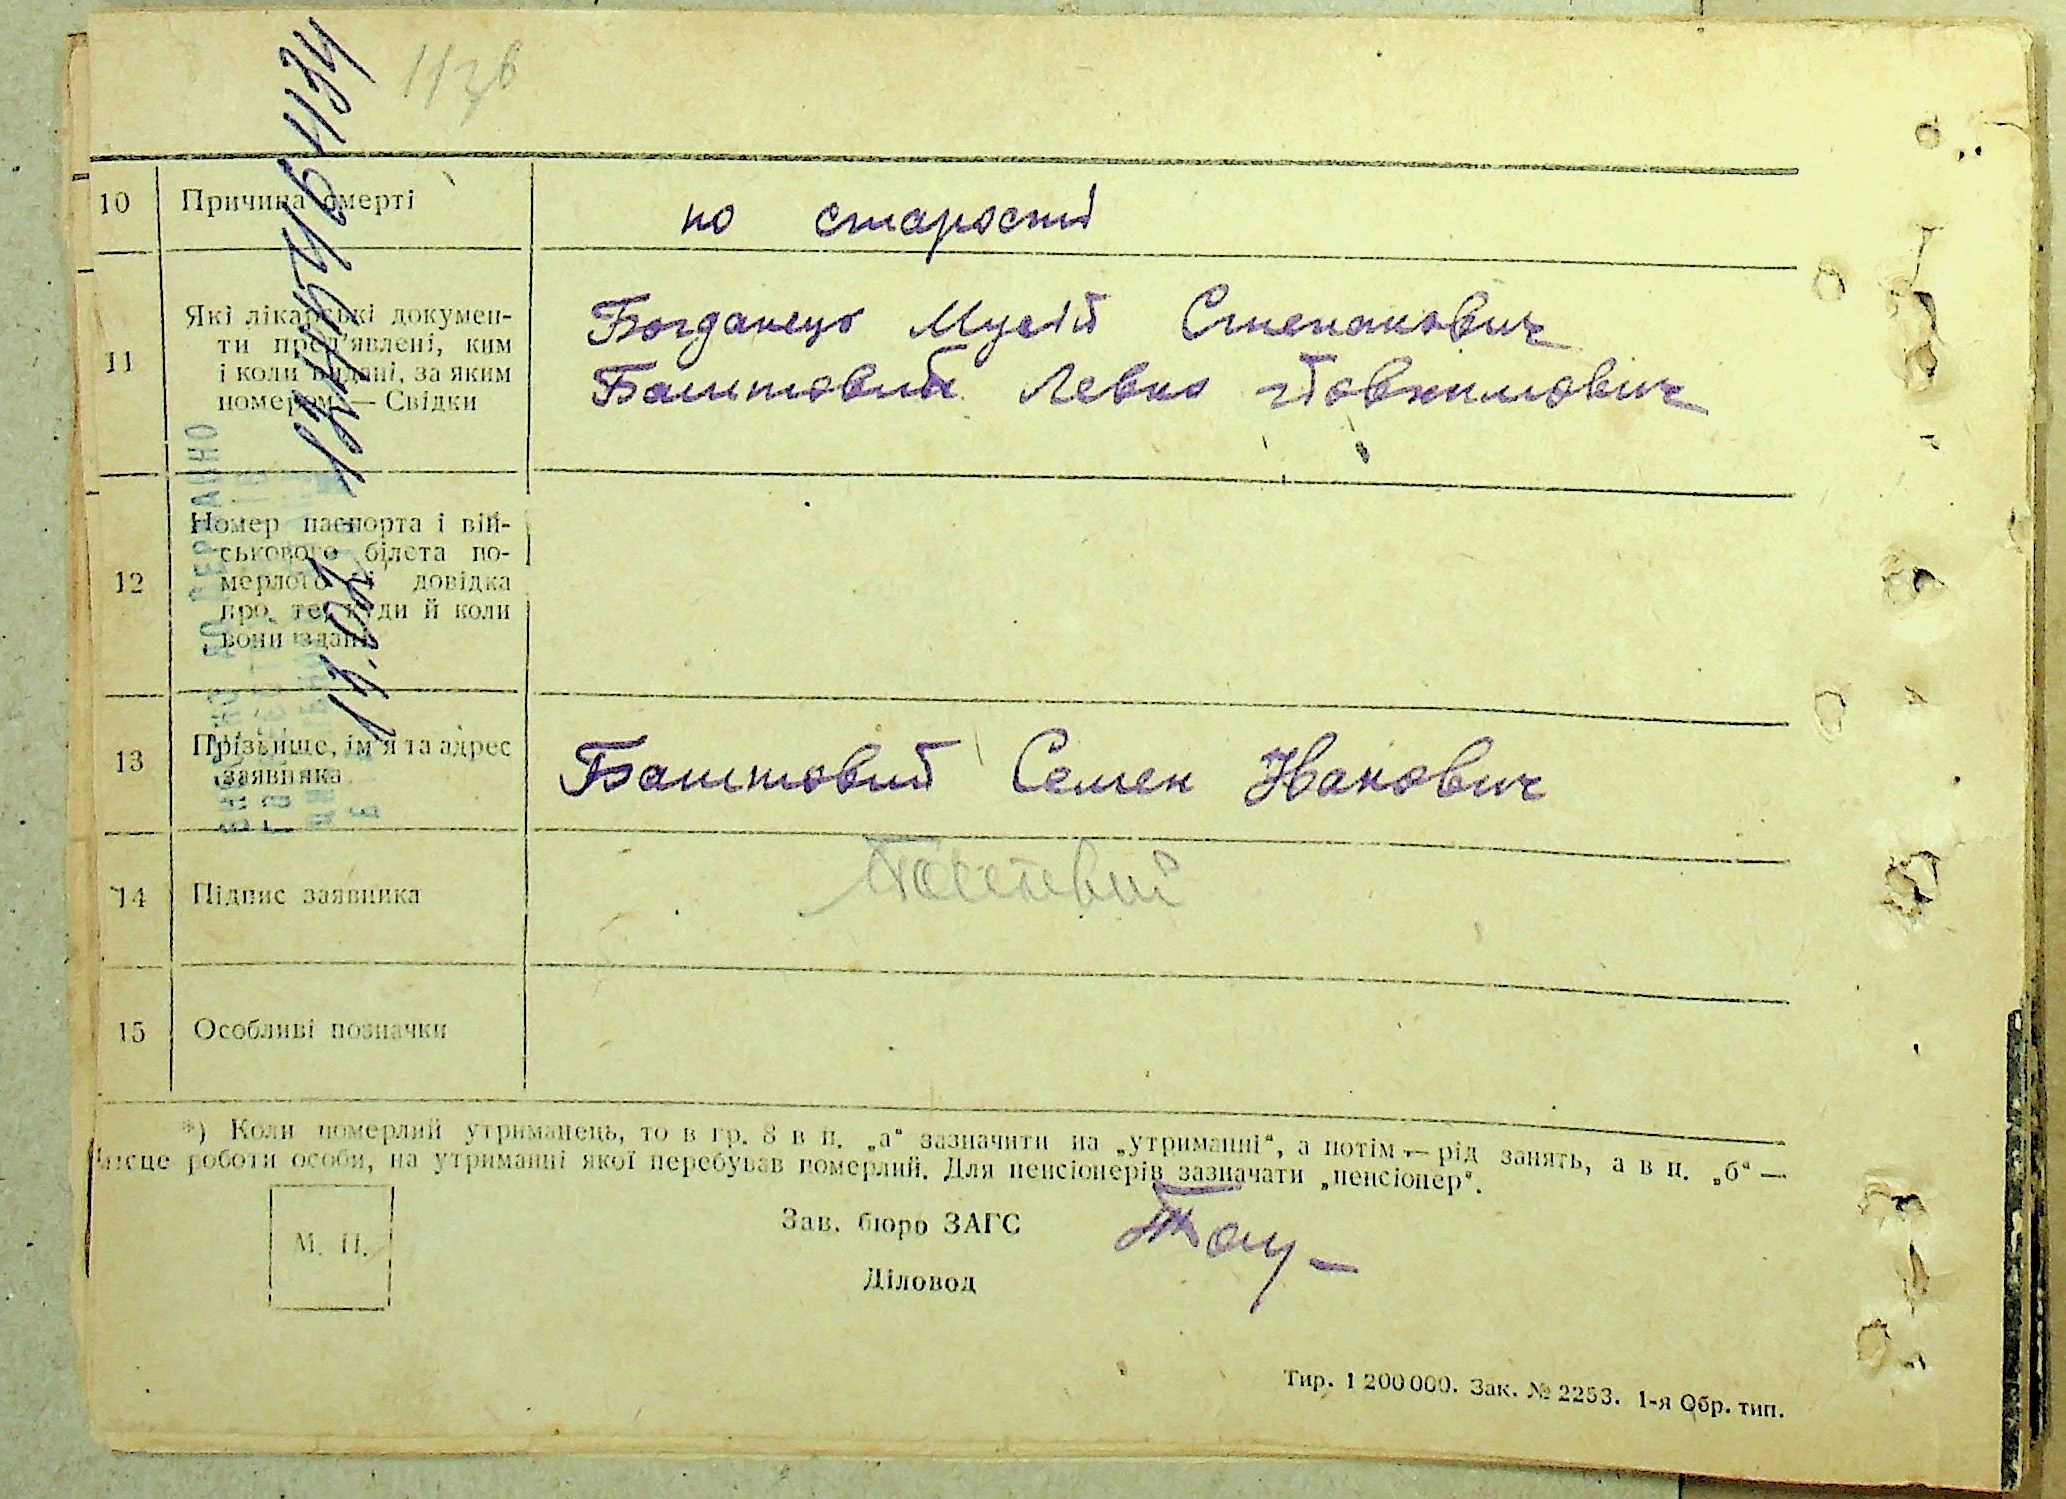 10 Причина смерті по старості
11 Які лікарські докумен-
ти пред'явлені, ким
і коли видані, за яким
номером — Свідки
Богданець Мусій Степанович
Баштовий Левко
12 Номер паспорта і вій-
ськового білета по-
мерлого і довідка
про те, куди й коли
вони здані
13 Прізвище, ім'я та адрес
заявника
Баштовий Семен Іванович
14 Підпис заявника
15 Особливі позначки
*) Коли померлий утриманець, то в гр. 8 в п. „а“ зазначити на „утриманні“, а потім — рід занять, а в п. „б“ —
місце роботи особи, на утриманні якої перебував померлий. Для пенсіонерів зазначати „пенсіонер“.
М. П.
Зав. бюро ЗАГС
Діловод
Тир. 1 200 000. Зак. № 2253. 1-я Обр. тип.